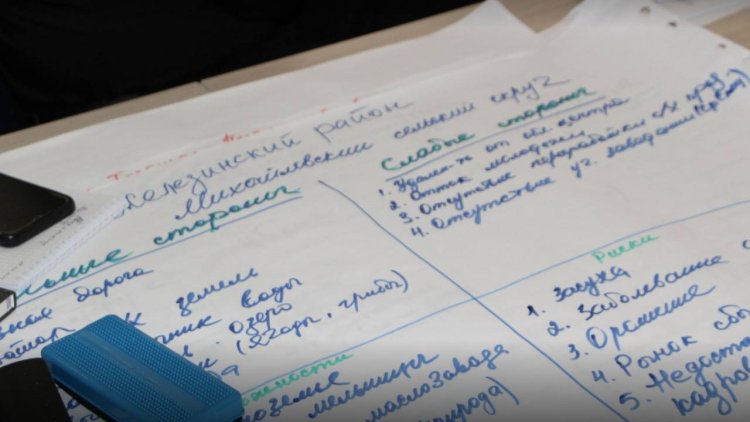 Железинский район
Михайловский сельский округ
Слабые стороны
1. Удален-ть от обл. центра
2. Отток молодежи
3. Отсутствие переработки с/х прод.
4. Отсутствие уч. заведения
стороны
дорога
земель
воды
Озеро
(ягоды, грибы)
мельницы
маслозавода
природа)
Риски
1. Засуха
2. Заболевание
3. Орошение
4. Рынок сбы
5. Недоста
кадров